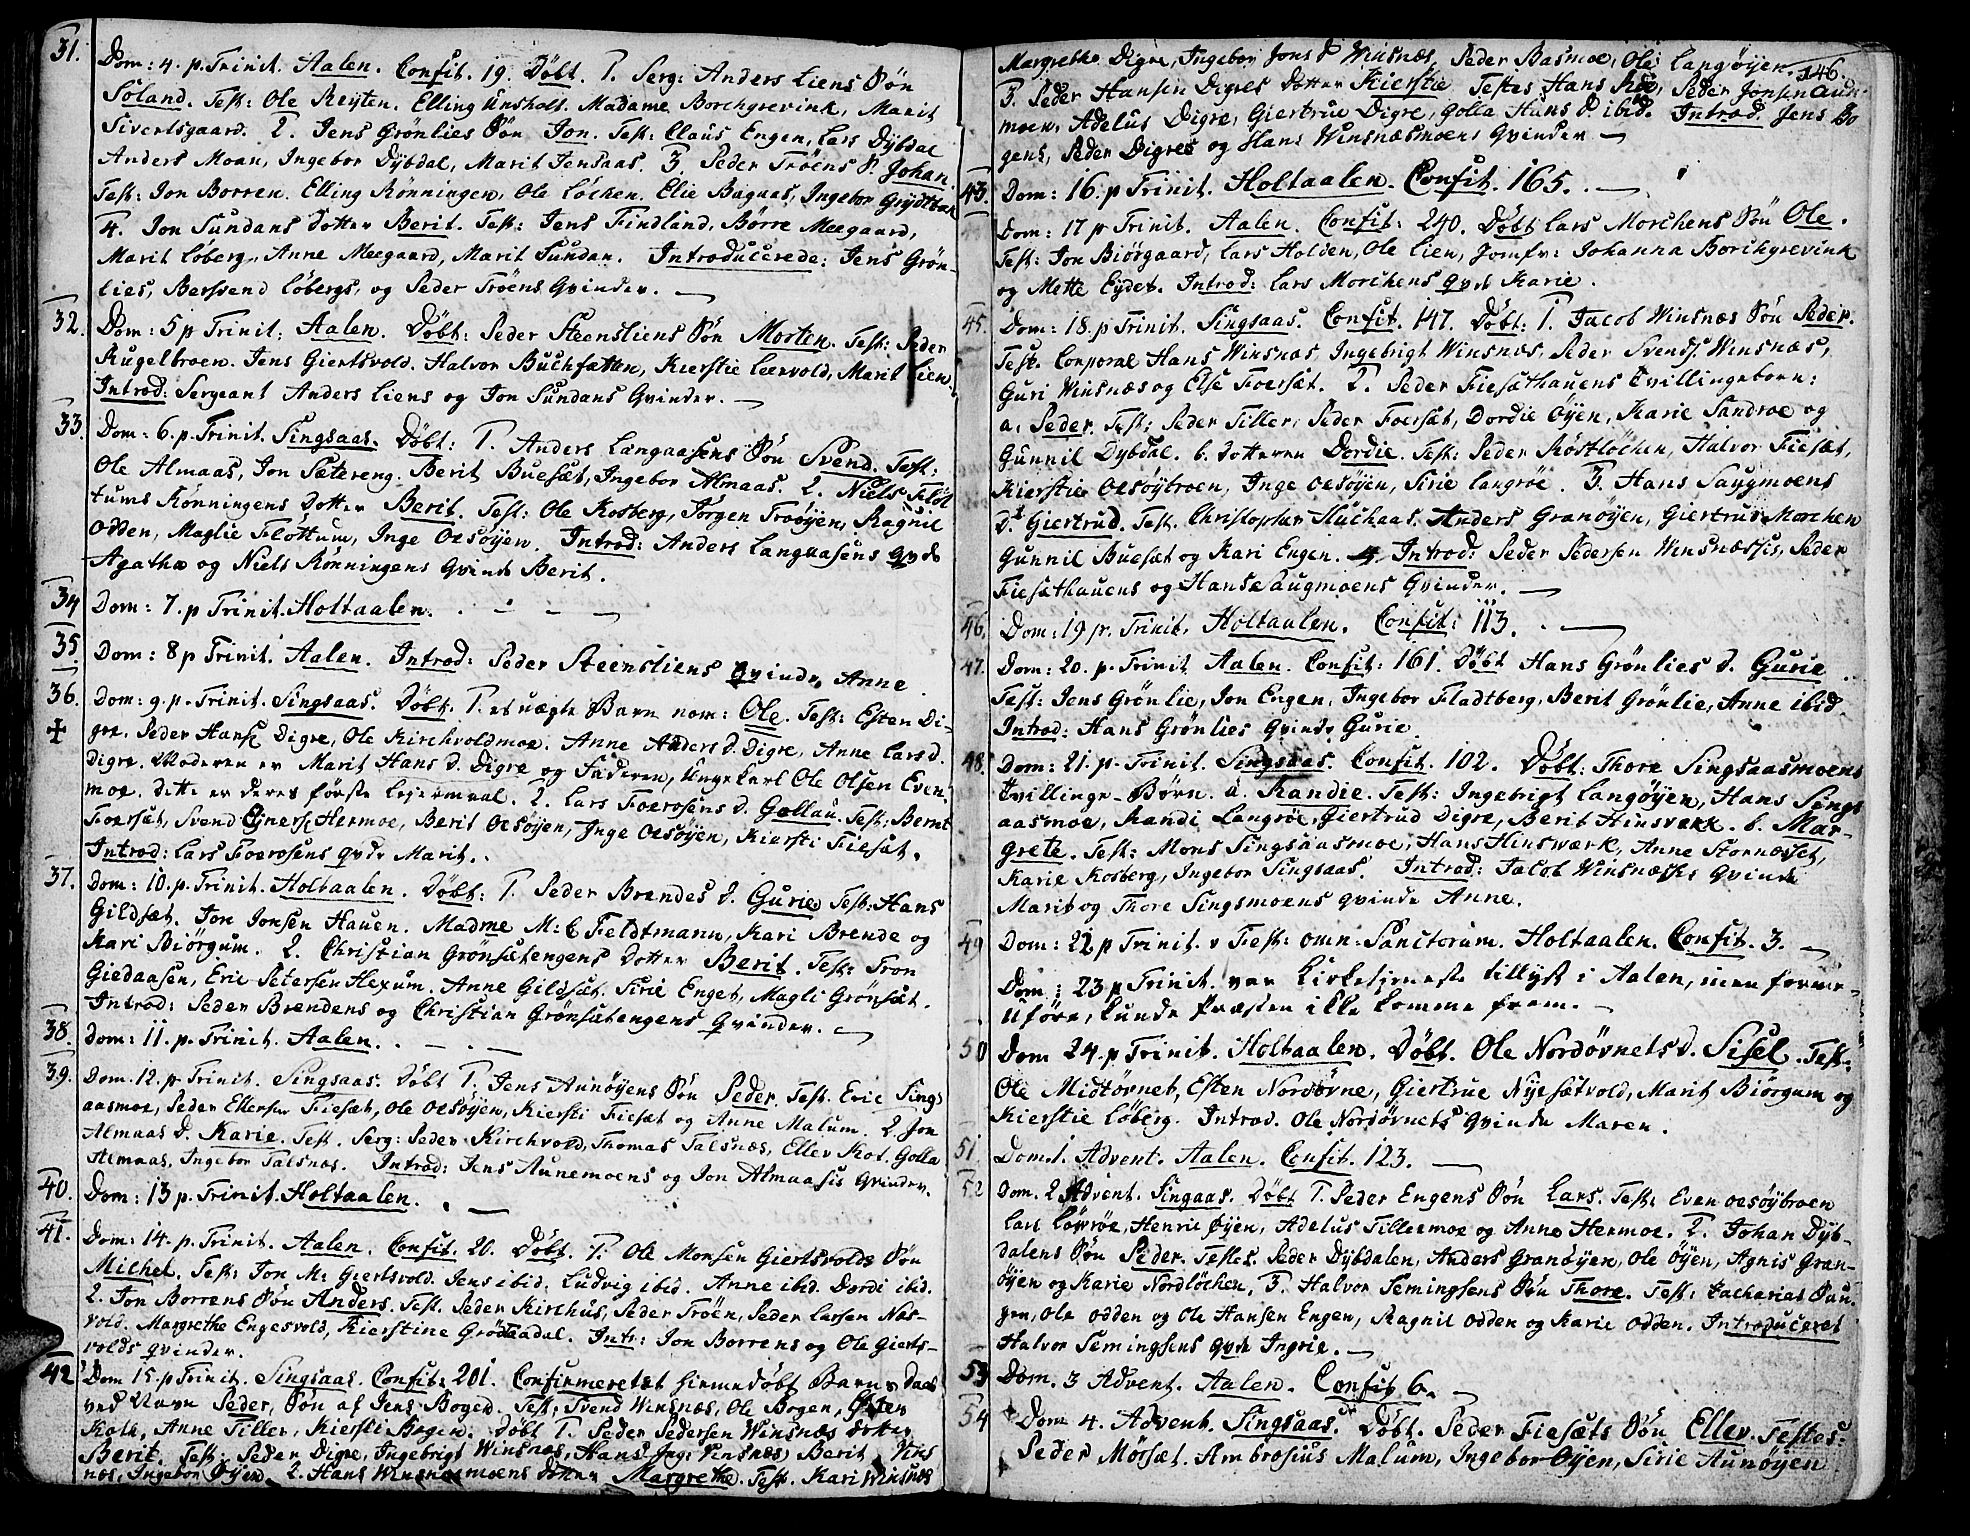 31. Dom: 4. p. Trinit. Aalen. Confit. 19. Döbt. 1. Serg: Anders Liens Sön
Soland. Test: Ole Reyten. Elling Unsholt. Madame Borchgrevink, Marit
Sivertsgaard. 2. Jens Grönlies Sön Jon. Test: Claus Engen, Lars Dybdal
Anders Moan, Ingebor Dybdal, Marit Jensaas. 3 Peder Tröens S. Johan.
Test: Jon Borren. Elling Rönningen, Ole Löchen. Elie Bagnas, Ingebor Grydtbak
4. Jon Sundans Dotter Berit. Test: Jens Findland, Börre Meegaard,
Marit Löberg, Anne Meegaard, Marit Sundan. Introducerede: Jens Grön-
lies, Bersvend Löbergs, og Peder Tröens Qvinder.
32. Dom: 5 p Trinit: Aalen. Döbt: Peder Steensliens Sön Morten. Test: Peder
Kugelbroen. Jens Giertsvold. Halvor Buchfatten, Kierstie Leervold, Marit Lien.
Introd: Sergeant Anders Liens og Jon Sundans Qvinder.
33. Dom: 6. p. Trinit. Singsaas. Döbt: 1. Anders Langaasens Sön Svend. Test:
Ole Almaas, Jon Setereng. Berit Buesæt, Ingebor Almaas. 2. Niels Flöt
tums Rönningens Dotter Berit. Test: Ole Kosberg, Jörgen Troöyen, Ragnil
Odden, Maglie Flottum, Inge Oesöyen. Introd: Anders Langaasens Qvde
Agatha og Niels Rönningens Qvinde Berit.
34 Dom: 7. p Trinit. Holtaalen.
35. Dom: 8 p Trinit. Aalen. Introd: Peder Steensliens Qvinde Anne.
36. Dom: 9. p. Trinit. Singsaas. Döbt: 1. et uægte Barn nom: Ole. Test: Esten Di-
gre, Peder Hans: Digre, Ole Kirchvoldmoe. Anne Anders d. Digre, Anne Lars d.
Digre. Moderen er Marit Hans d. Digre og Faderen, Ungekarl Ole Olsen Even-
moe. dette er deres förste Lejermaal. 2. Lars Foerosens d. Gollau. Test: Bernt
Foersæt, Svend Eynerss. Hermoe, Berit Oesöyen, Inge Oesöyen, Kiersti Fiesæt.
Introd: Lars Foerosens Qvde Marit.
37. Dom: 10. p. Trinit. Holtaalen. Döbt: 1. Peder Brendes d. Gurie. Test: Hans
Gildsæt. Jon Jonsen Hauen. Madme M: C Feldtmann, Kari Brende og
Kari Biörgum. 2. Christian Grönsætengens Dotter Berit. Test: Tron
Giedaasen, Eric Petersen Hexum. Anne Gildsæt. Sirie Enget, Magli Grönsæt.
Introd: Peder Brendens og Christian Grönsætengens Qvinder.
38. Dom: 11. p. Trinit. Aalen.
39. Dom: 12. p. Trinit. Singsaas. Döbt 1. Jens Aunöyens Sön Peder. Test. Eric Sings
aasmoe, Peder Ellersen Fiesæt, Ole Oesöyen, Kiersti Fiesæt og Anne Malum. 2. Jon
Almaas d. Karie. Test. Serg: Peder Kirchvold, Thomas Talsnæs, Eller Kot. Golla
Almaas, Ingebor Talsnæs. Introd: Jens Aunemoens og Jon Almaasis Qvinder.
40. Dom: 13 p. Trinit. Holtaalen.
41. Dom: 14. p. Trinit. Aalen. Confit. 20. Döbt. 1. Ole Monsen Giertsvolds Sön
Michel. Test: Jon M: Giertsvold. Jens ibid. Ludvig ibid. Anne ibid. Dordi ibid.
2. Jon Borrens Sön Anders. Test. Peder Kirchus, Peder Tröen, Peder Larsen Næs-
vold. Margrethe Engesvold, Kierstine Grödtaadal. Intr: Jon Borrens og Ole Gierts-
volds Qvinder.
42 Dom 15. p Trinit. Singsaas. Confit: 201. Confirmeret et hiemedöbt Barns Daab
ved Navn Peder, Sön af Jens Bogen. Test: Svend Winsnæs, Ole Bogen, Esten
Kolk, Anne Tiller, Kiersti Bogen. Döbt 1. Peder Pedersen Winsnæs Dotter
Berit. Test: Peder Digre, Ingebrigt Winsnæs, Hans Winsnæs, Berit Vins
næs, Ingebor Öyen. 2. Hans Winsnæsmoens Dotter Margrethe. Test. Kari Winsnæs
146.
Margrethe Digre, Ingebor Jons d Winsnæs, Peder Basmoe, Ole Langöyen.
3. Peder Hansen Digres Dotter Kierstie Testes Hans Röe, Peder Jonsen Aun-
moen, Adelus Digre, Giertrue Digre, Golla Hans d. ibid. Introd. Jens Bo
gens, Peder Digres og Hans Winsnæsmoens Qvinder
43. Dom: 16. p Trinit. Holtaalen. Confit. 165.
Dom: 17 p Trinit. Aalen. Confit: 240. Döbt Lars Morchens Sön Ole.
Test: Jon Biörgaard, Lars Holden, Ole Lien, Jomfr: Johanna Borchgrevink
og Mette Eydet. Introd: Lars Morchens Qvde Karie.
45. Dom: 18. p Trinit. Singsaas. Confit. 147. Döbt: 1. Jacob Winsnæs Sön Peder.
Test. Corporal Hans Winsnæs, Ingebrigt Winsnæs, Peder Svends. Winsnæs,
Guri Winsnæs og Else Foersæt. 2. Peder Fiesæthauens Tvillingeborn:
a. Peder. Test: Peder Tiller, Peder Foersæt, Dordie Öyen, Karie Sandroe og
Gunnil Dybdal. b. Dotteren Dordie. Test: Peder Röstlöchen, Halvor Fiesæt,
Kierstie Oesöybroen, Inge Oesöyen, Sirie Langröe. 3. Hans Saugmoens
D. Giertrud. Test. Christopher Huchaas. Anders Granöyen, Giertrue Morchen
Gunnil Buesæt og Kari Engen. Introd: Peder Pedersen Winsnæssis, Peder
Fiesæthauens og Hans Saugmoens Qvinder.
46. Dom: 19 p. Trinit. Holtaalen. Confit: 113.
47. Dom: 20. p. Trinit Aalen. Confit: 161. Döbt Hans Grönlies d. Gurie
Test: Jens Grönlie, Jon Engen, Ingebor Fladtberg, Berit Grönlie, Anne ibid
Introd: Hans Grönlies Qvinde Gurie.
48. Dom: 21. p. Trinit. Singsaas. Confit. 102. Döbt: Thore Singsaasmoens
Tvillinge-Börn. a. Randie. Test: Ingebrigt Langöyen, Hans Sings
aasmoe, Randi Langröe, Giertrud Digre, Berit Hinsværk. b. Mar-
grete. Test: Mons Singsaasmoe, Hans Hinsværk, Anne Stornæsset,
Karie Kosberg, Ingebor Singsaas. Introd: Jacob Winsnæsses Qvinde
Marit og Thore Singsmoens Qvinde Anne.
49 Dom: 22 p Trinit. v Fest: omn: Sanctorum. Holtaalen. Confit. 3.
Dom: 23 p Trinit. var Kirketieneste tillyst i Aalen, men formed-
Uföre, kunde Præsten ikke komme frem.
50 Dom 24. p Trinit. Holtaalen. Döbt. Ole Nordövnets d. Sisel. Test:
Ole Midtövnet, Esten Nordövne, Giertrue Nyesætvold, Marit Biörgum og
Kierstie Löberg. Introd. Ole Nordövnets Qvinde Maren.
51. Dom. 1. Advent. Aalen. Confit. 123.
52 Dom. 2 Advent. Singaas. Döbt 1. Peder Engens Sön Lars. Test: Even Oesöybroen
Lars Löwröe, Henric Öyen, Adelus Tillermoe og Anne Hermoe. 2. Johan Dyb-
dalens Sön Peder. Testes. Peder Dybdalen, Anders Granöyen, Ole Öyen, Agnis Gran-
öyen og Karie Nordlöchen, 3. Halvor Semingsens Sön Thore. Test: Zacharias Sau-
gen, Ole Odden og Ole Hansen Engen, Ragnil Odden og Karie Odden. Introduceret
Halvor Semingsens Qvde Ingrie.
53 Dom. 3 Advent. Aalen. Confit 6.
54 Dom 4. Advent. Singsaas. Döbt. Peder Fiesæts Sön Eller. Testes:
Peder Mörsæt. Ambrosius Malum, Ingebor Öyen, Sirie Aunöyen